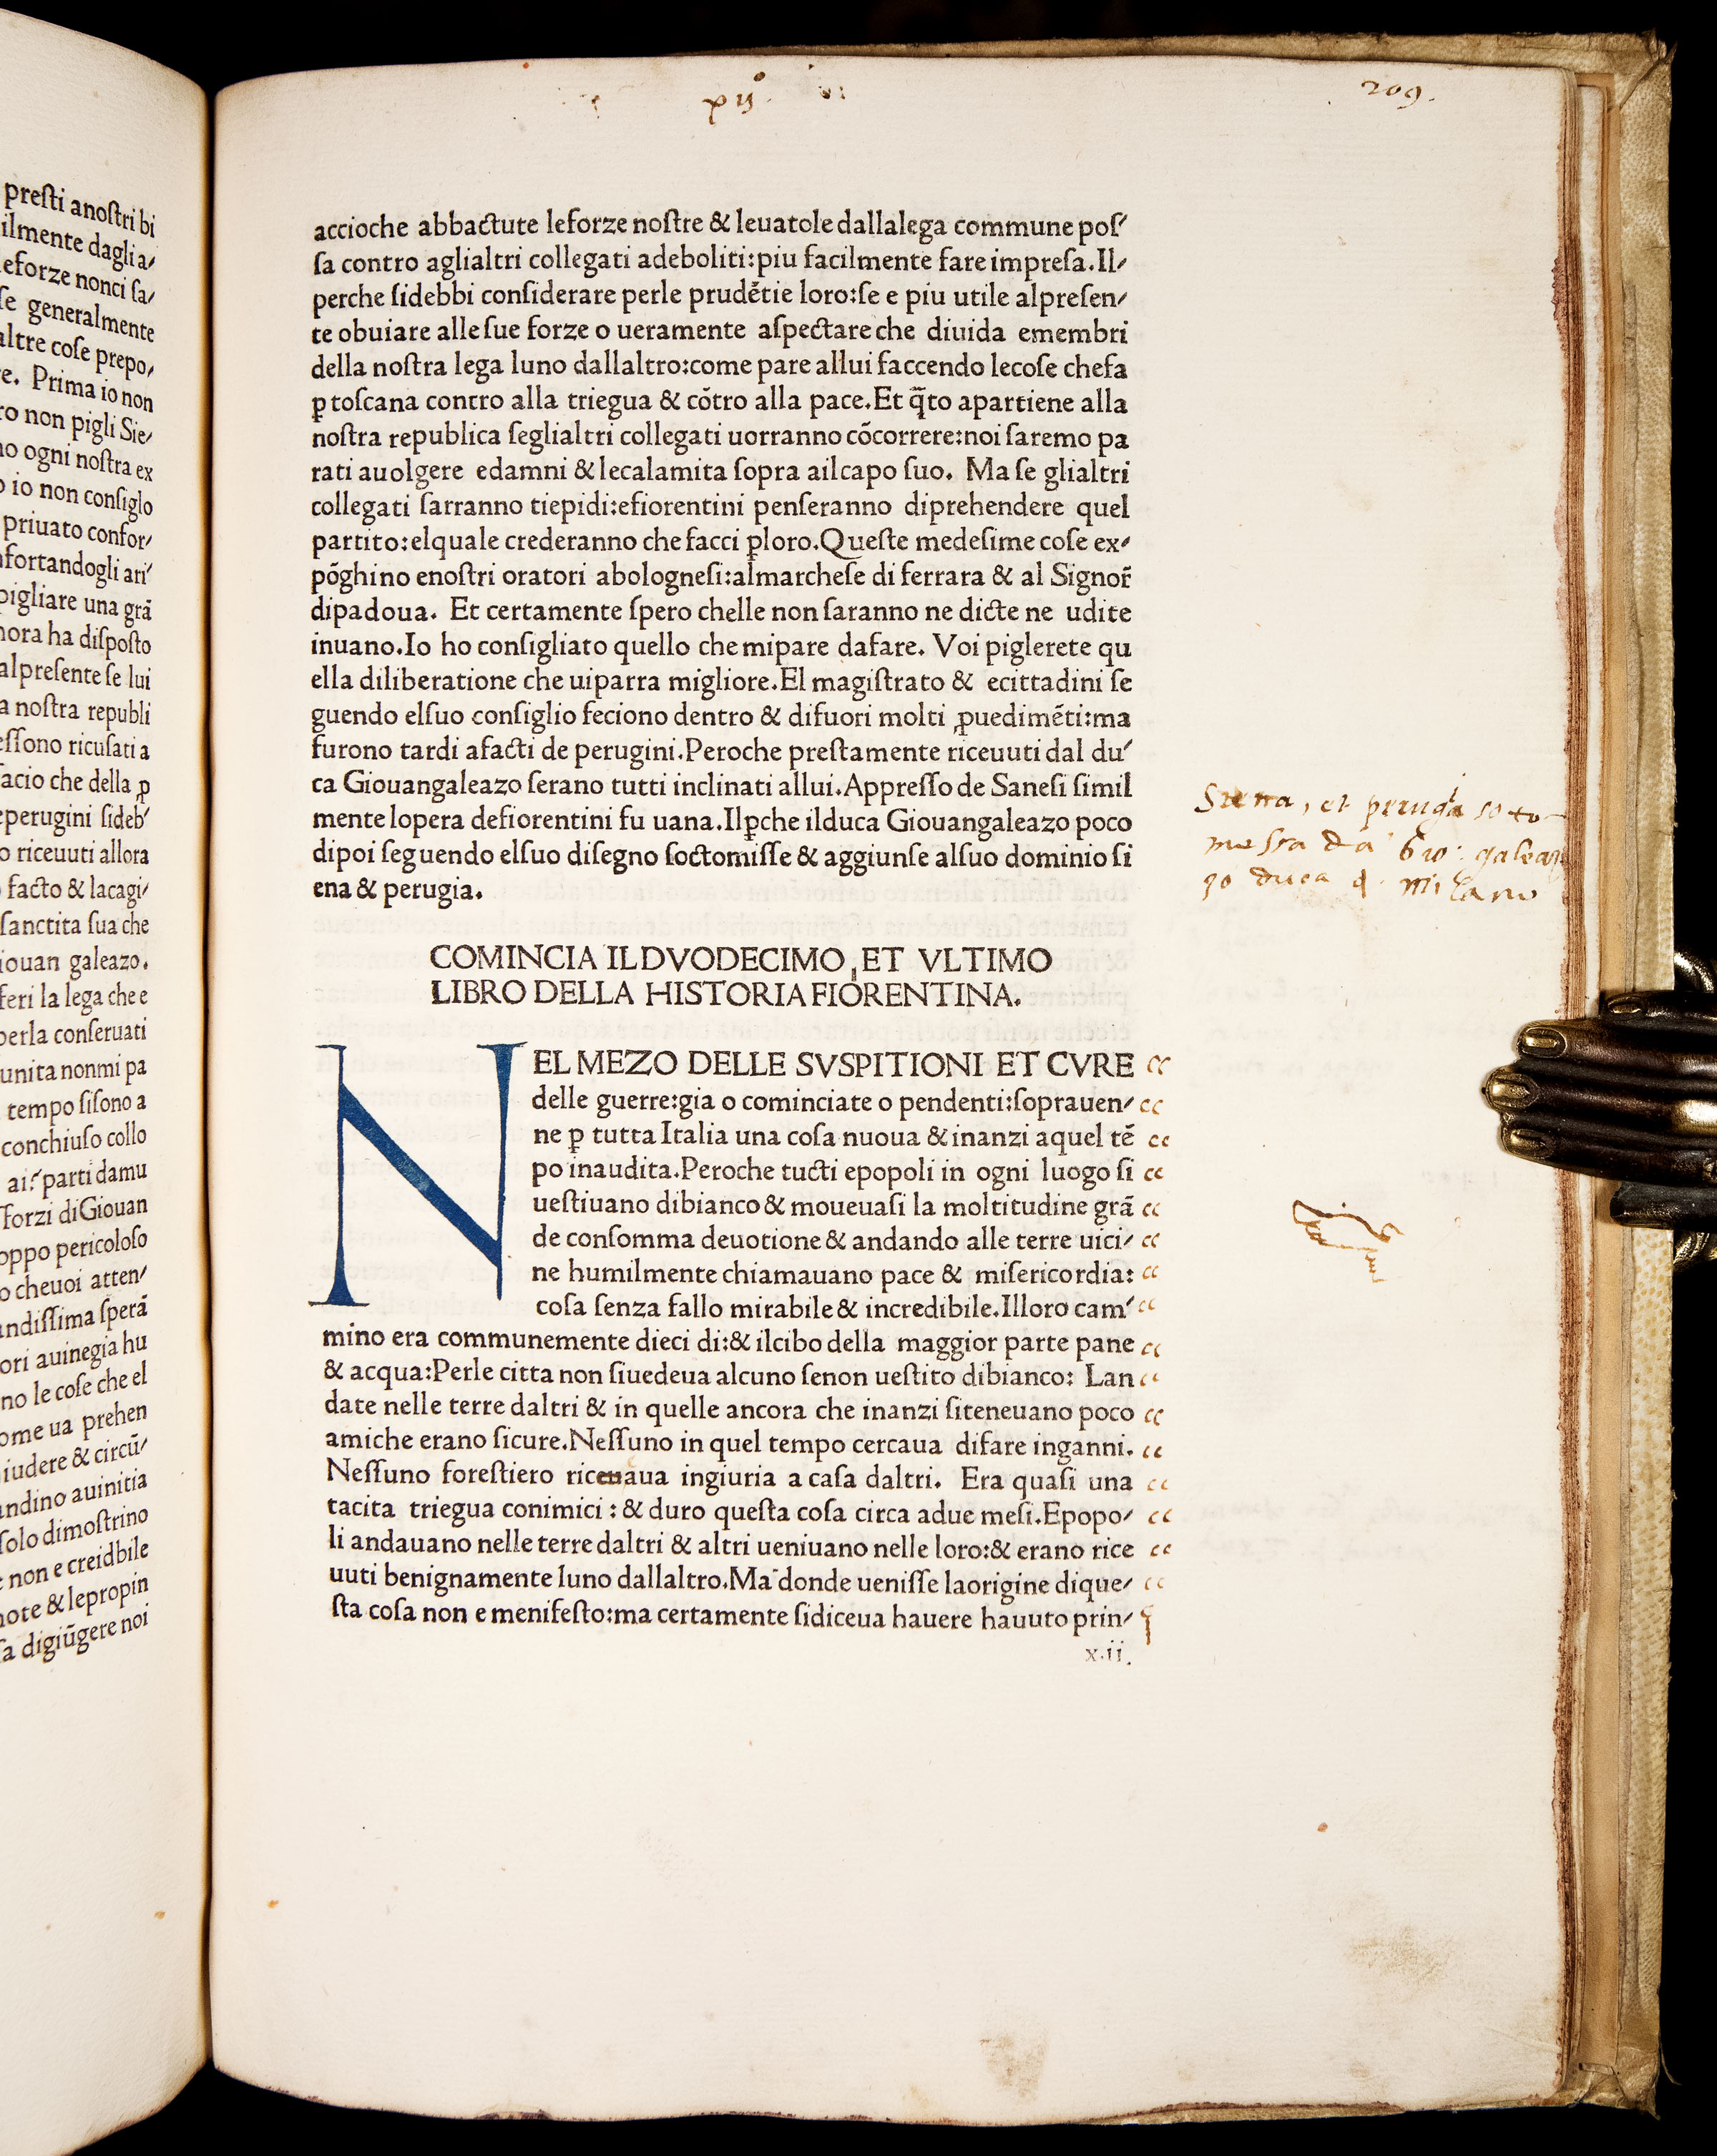 presti anostri bi
ilmente dagli a/
eforze nonci sa/
se generalmente
altre cose prepo/
e. Prima io non
ro non pigli Sie/
no ogni nostra ex
o io non consiglo
priuato confor/
nfortandogli ari/
pigliare una grã
nora ha disposto
alpresente se lui
a nostra republi
essono ricusati a
facio che della ꝓ
eperugini sideb/
o riceuuti allora
facto & lacagi/
sanctita sua che
iouan galeazo.
feri la lega che e
perla conseruati
unita nonmi pa
tempo sisono a
conchiuso collo
parti damu
forzi diGiouan
oppo pericoloso
o cheuoi atten/
andissima sperã
ori auinegia hu
no le cose che el
ome ua prehen
iudere & circũ/
andino auinitia
solo dimostrino
e non e creidbile
note & lepropin
sa digiũgere noi
xij.
209.
accioche abbactute leforze nostre & leuatole dallalega commune pos/
sa contro aglialtri collegati adeboliti:piu facilmente fare impresa.Il/
perche sidebbi considerare perle prudẽtie loro:se e piu utile alpresen/
te obuiare alle sue forze o ueramente aspectare che diuida emembri
della nostra lega luno dallaltro:come pare allui faccendo lecose chefa
ꝑ toscana contro alla triegua & cõtro alla pace.Et q̃to apartiene alla
nostra republica seglialtri collegati uorranno cõcorrere:noi saremo pa
rati auolgere edamni & lecalamita sopra ailcapo suo. Ma se glialtri
collegati sarranno tiepidi:efiorentini penseranno diprehendere quel
partito:elquale crederanno che facci ꝑloro.Queste medesime cose ex/
põghino enostri oratori abolognesi:almarchese di ferrara & al Signor̃
dipadoua. Et certamente spero chelle non saranno ne dicte ne udite
inuano.Io ho consigliato quello che mipare dafare. Voi piglerete qu
ella diliberatione che uiparra migliore.El magistrato & ecittadini se
guendo elsuo consiglio feciono dentro & difuori molti ꝓuedimẽti:ma
furono tardi afacti de perugini.Peroche prestamente riceuuti dal du/
ca Giouangaleazo serano tutti inclinati allui.Appresso de Sanesi simil
mente lopera defiorentini fu uana.Ilꝑche ilduca Giouangaleazo poco
dipoi seguendo elsuo disegno soctomisse & aggiunse alsuo dominio si
ena & perugia.
Siena, et perugia soto-
messa da Gio: galeaz
zo duca d. milano
COMINCIA IL DVODECIMO, ET VLTIMO
LIBRO DELLA HISTORIA FIORENTINA.
NEL MEZO DELLE SVSPITIONI ET CVRE
delle guerre:gia o cominciate o pendenti:soprauen/
ne ꝑ tutta Italia una cosa nuoua & inanzi aquel tẽ
po inaudita.Peroche tucti epopoli in ogni luogo si
uestiuano dibianco & moueuasi la moltitudine grã
de consomma deuotione & andando alle terre uici/
ne humilmente chiamauano pace & misericordia:
cosa senza fallo mirabile & incredibile.Illoro cam/
mino era communemente dieci di:& ilcibo della maggior parte pane
& acqua:Perle citta non siuedeua alcuno senon uestito dibianco: Lan
date nelle terre daltri & in quelle ancora che inanzi siteneuano poco
amiche erano sicure.Nessuno in quel tempo cercaua difare inganni.
Nessuno forestiero ricenaua ingiuria a casa daltri. Era quasi una
tacita triegua conimici : & duro questa cosa circa adue mesi.Epopo/
li andauano nelle terre daltri & altri ueniuano nelle loro:& erano rice
uuti benignamente luno dallaltro.Ma donde uenisse laorigine dique/
sta cosa non e menifesto:ma certamente sidiceua hauere hauuto prin/
x.ii.